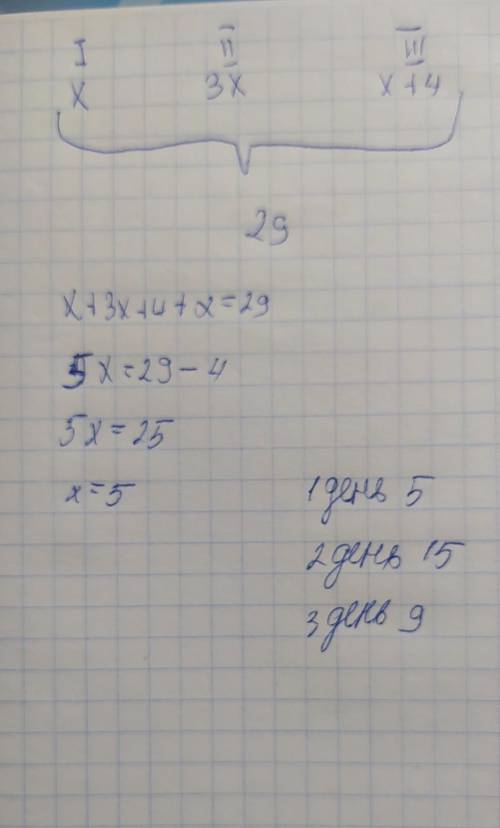 I II III
x 3x x+4
29
x+3x+4+x=29
5x=29-4
5x=25
x=5
1 день 5
2 день 15
3 день 9